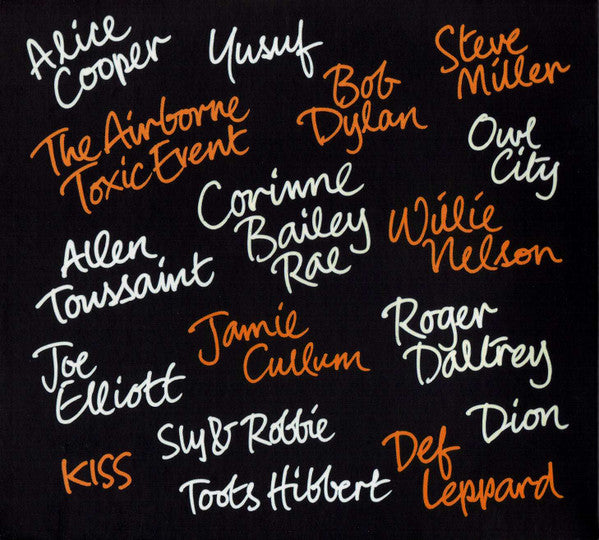 Alice
Cooper
Yusuf
Steve
Miller
Bob
Dylan
The Airborne
Toxic Event
Owl
City
Corinne
Bailey
Rae
Willie
Nelson
Allen
Toussaint
Jamie
Cullum
Roger
Daltrey
Joe
Elliott
Dion
Sly & Robbie
KISS
Def
Leppard
Toots Hibbert